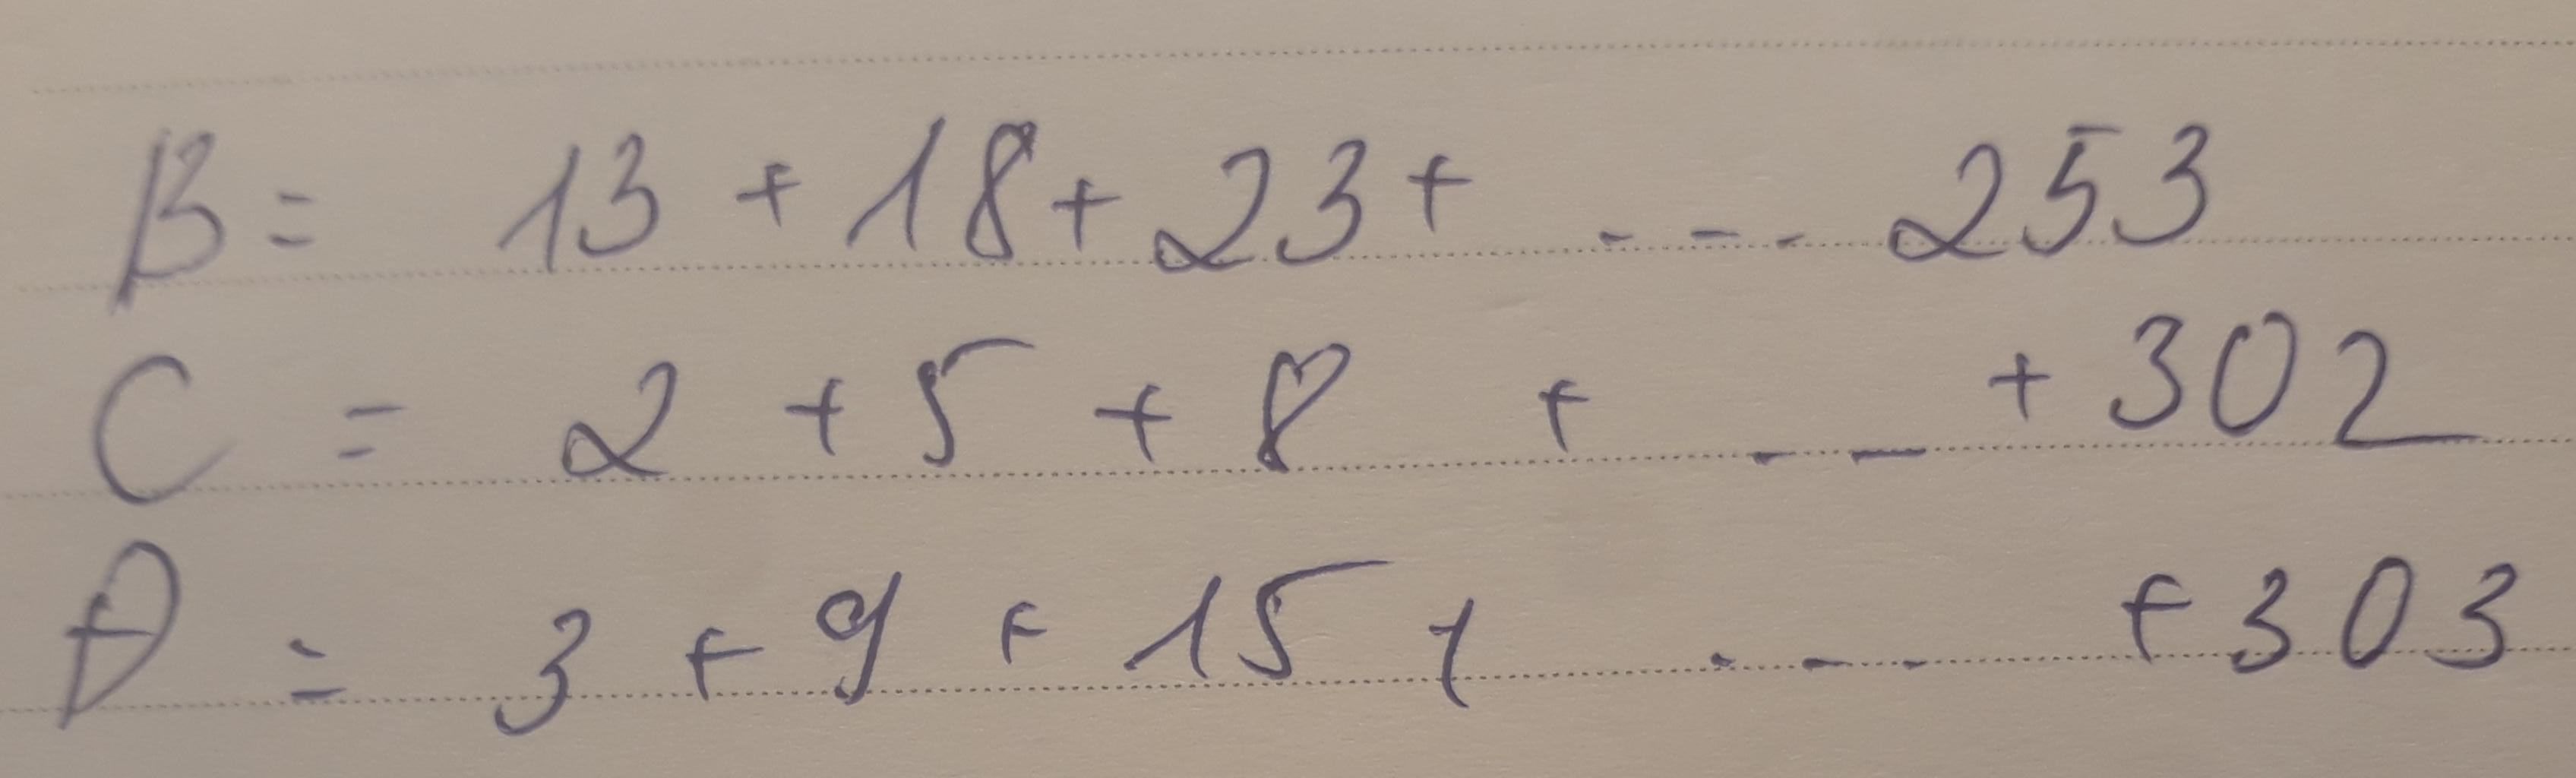 B = 13 + 18 + 23 + .... 253
C = 2 + 5 + 8 + ... + 302
D = 3 + 9 + 15 + .... + 303